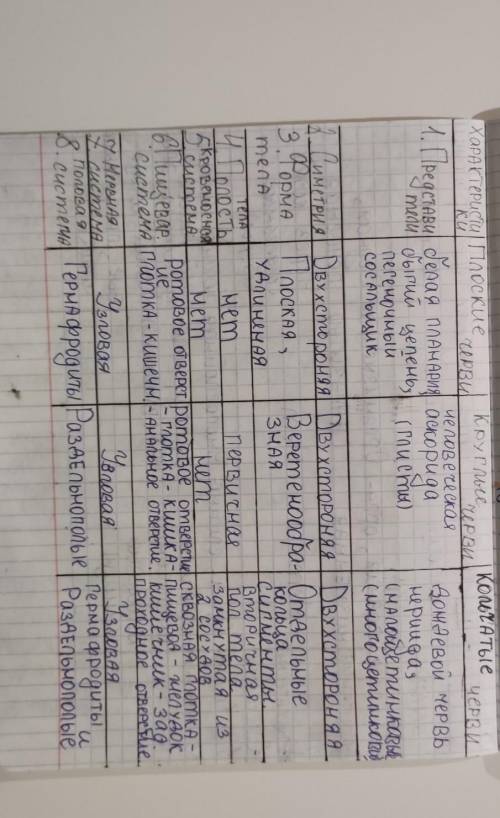 характеристи
ки
Плоские черви
Круглые черви
Кольчатые черви
1. Представи
тели
белая планария
бычий цепень,
печеночный
сосальщик
человеческая
аскорида
(глисты)
дождевой червь
нериида,
(малощетинковые
(многощетинковые
2. Симитрия
Двухстороняя
Двухстороняя
Двухстороняя
3. Форма
тела
Плоская,
удлиненая
Веретенообра-
зная
Отдельные
кольца
сигменты
4. Полость тела
нет
первичная
Вторичная
пол. тела
5 Кровеносная
система
нет
нет
замкнутая из
2 сосудов
6. Пищевар
система
ротовое отверст
ие
глотка - кишечн.
ротовое отверстие
- глотка - кишка -
- анальное отверстие.
сквозная глотка -
пищевод - желудок
кишечник - зад.
проходное отверстие
7. Нервная
система
Узловая
Узловая
Узловая
8. Половая
система
Гермафродиты
Раздельнополые
гермафродиты и
Раздельнополые